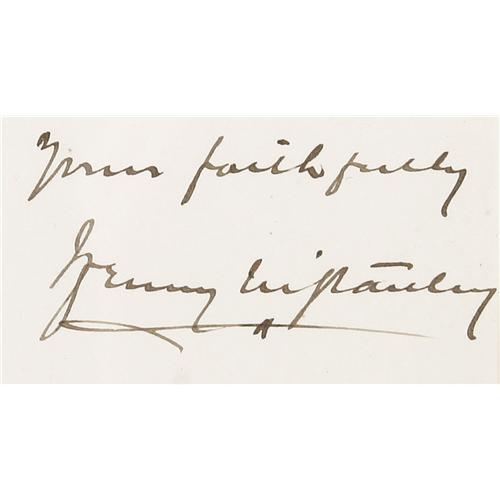 Yours faithfully
Henry M Stanley